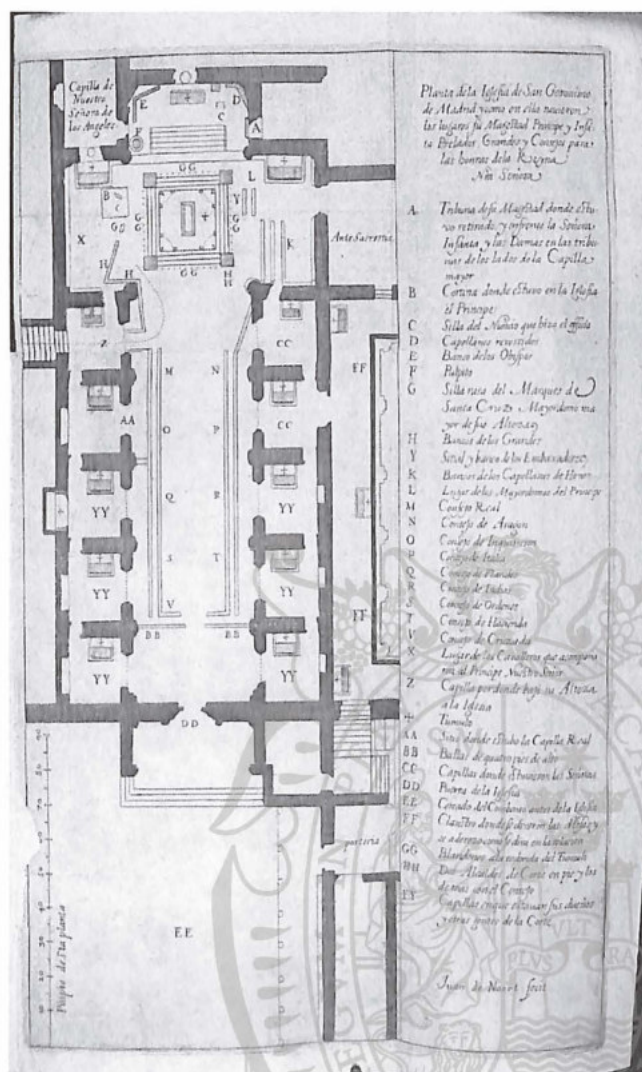 Capilla de
Nuestra
Señora de
los Angeles
E
D
C
F
A
GG
L
B
Y
GG
GG
X
K
H
H
GG
H
H
Ante Sacristia
Z
M
N
CC
FF
AA
O
P
CC
YY
Q
R
YY
YY
S
T
YY
FF
V
BB
BB
YY
YY
DD
porteria
EE
Pitipie desta planta
10
20
30
40
50
60
70
80
90
Planta dela Iglesia de San Geronimo
de Madrid y como en ella tuvieron
los lugares su Magestad Principe y Infa
ta Prelados Grandes y Consejos para
las honras dela Reyna
Nra Señora
A Tribuna de su Magestad donde estu
vo retirado, y enfrente la Señora
Infanta y las Damas en las tribu
nas de los lados de la Capilla
mayor
B Cortina donde estuvo en la Iglesia
el Principe
C Silla del Nuncio que hizo el offiçio
D Capellanes revestidos
E Banco delos Obispos
F Pulpito
G Silla rasa del Marques de
Santa Cruz Mayordomo ma
yor de sus Altezas
H Bancos de los Grandes
Y Sitial y banco de los Embaxadores
K Bancos de los Capellanes de Honor
L Lugar de los Mayordomos del Principe
M Consejo Real
N Consejo de Aragon
O Consejo de Inquisicion
P Consejo de Italia
Q Consejo de Flandes
R Consejo de Indias
S Consejo de Ordenes
T Consejo de Hacienda
V Consejo de Cruzada
X Lugar de los Cavalleros que acompaña
ron al Principe Nuestro Señor
Z Capilla por donde bajó su Alteza
a la Iglesia
+ Tumulo
AA Sitio donde estubo la Capilla Real
BB Ballas de quatro pies de alto
CC Capillas donde estuvieron las Señoras
DD Puerta de la Iglesia
EE antes de la Iglesia
FF Claustro donde se dixeron las Missas y
se aderezo como se dixo en la relacion
GG Blandones ala redonda del Tumulo
HH Dos Alcaldes de Corte en pie y los
demas con el Consejo
YY Capillas en que estavan sus dueños
y otras gentes de la Corte
Juan de Noort fecit
PLVS
VLT
RA